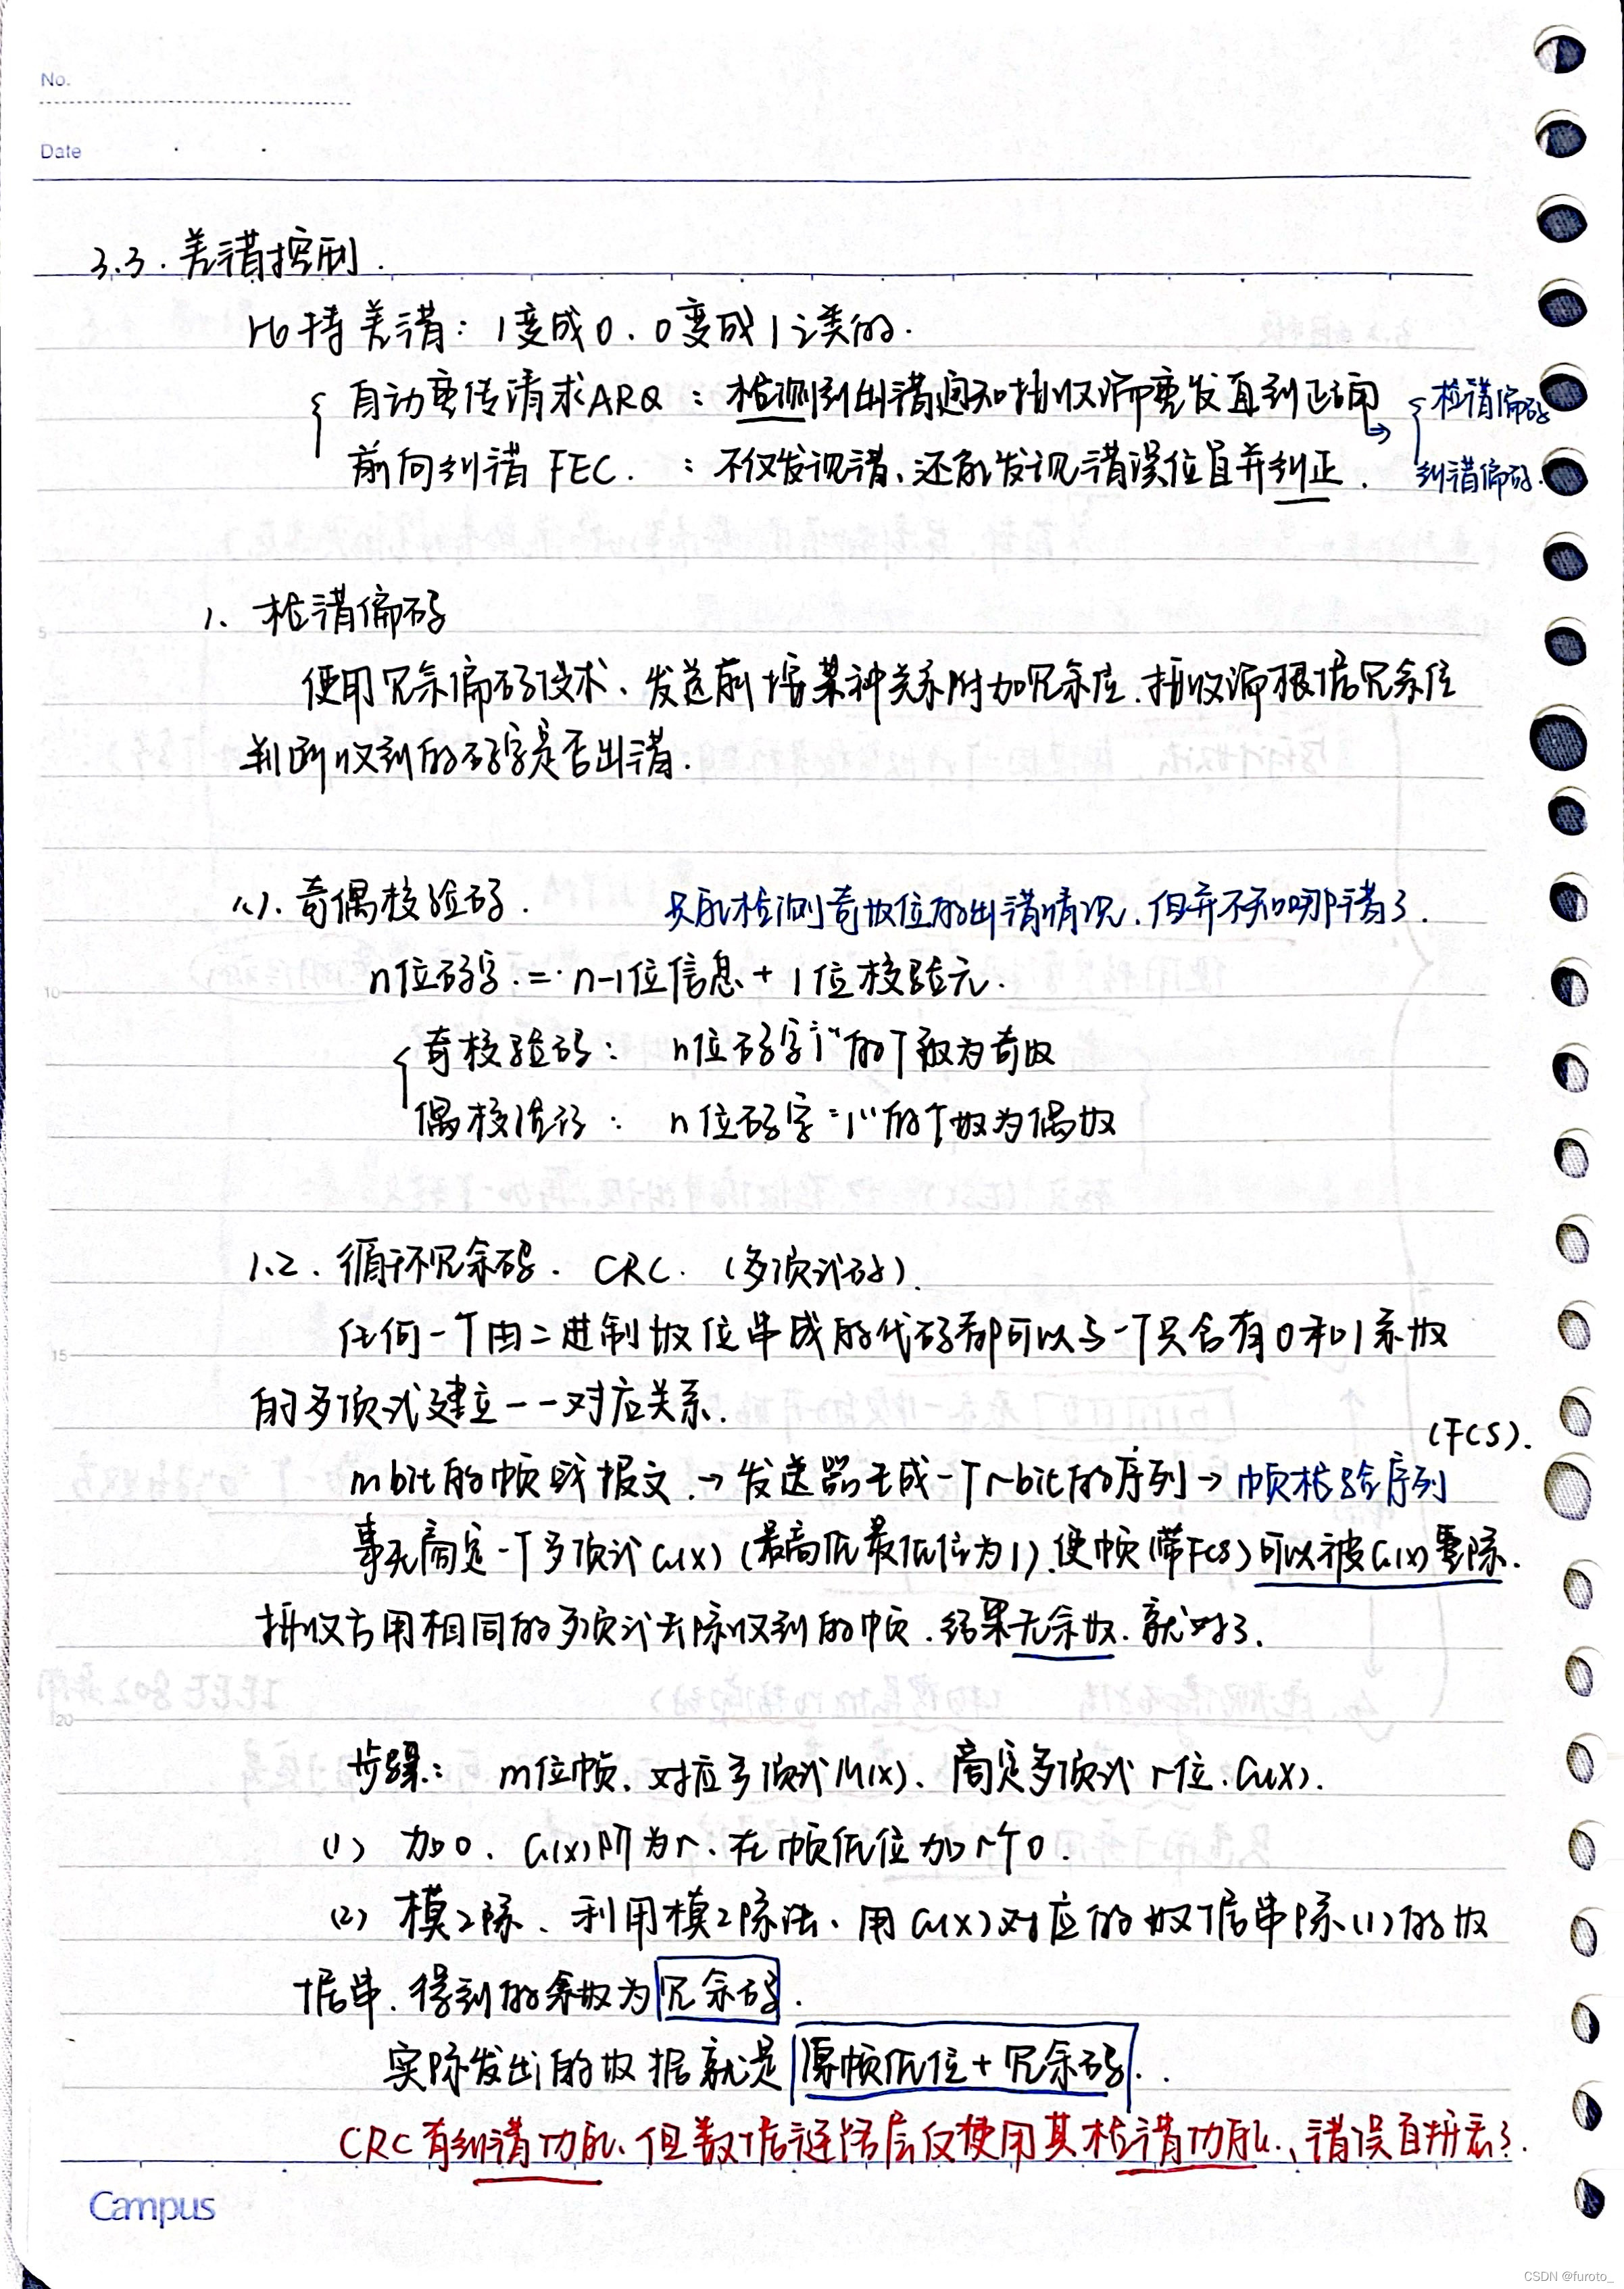 No.
Date
3.3. 差错控制.
比特差错: 1变成0. 0变成1之类的.
自动重传请求ARQ : 检测到出错通知接收端重发直到正确 → 检错编码
前向纠错 FEC. : 不仅发现错、还能发现错误位且并纠正. 纠错编码.
1. 检错编码
使用冗余编码技术、发送前按某种关系附加冗余位.接收端根据冗余位
判断收到的码字是否出错.
(1). 奇偶校验码. 只能检测奇数位的出错情况.但并不知哪错了.
n位码字 = n-1位信息 + 1位校验元.
奇校验码: n位码字"1"的个数为奇数
偶校验码: n位码字"1"的个数为偶数
1.2. 循环冗余码. CRC. (多项式码).
任何一个由二进制数位串成的代码都可以与一个只含有0和1系数
的多项式建立一一对应关系.
(FCS).
m bit的帧或报文.→发送器生成一个r-bit的序列→帧检验序列
事先商定一个多项式G(x) (最高低最低位为1).使帧(带FCS)可以被G(x)整除.
接收方用相同的多项式去除收到的帧.结果无余数.就对了.
步骤: m位帧、对应多项式M(x)、商定多项式r位.G(x).
(1) 加0. G(x)阶为r.在帧低位加r个0.
(2) 模2除、利用模2除法、用G(x)对应的数据串除(1)的数
据串.得到的余数为冗余码.
实际发出的数据就是原帧低位+冗余码.
CRC有纠错功能.但数据链路层仅使用其检错功能.、错误直接丢了.
Campus
CSDN @furoto_